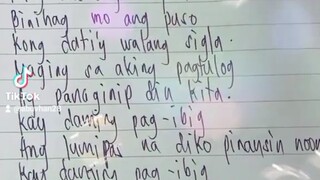 Binihag mo ang puso
Kong dati'y walang sigla.
Maging sa aking pagtulog
ay panaginip din kita.
Kay daming pag-ibig
Ang lumipas na diko pinansin noon
Kay daming pag-ibig
TikTok